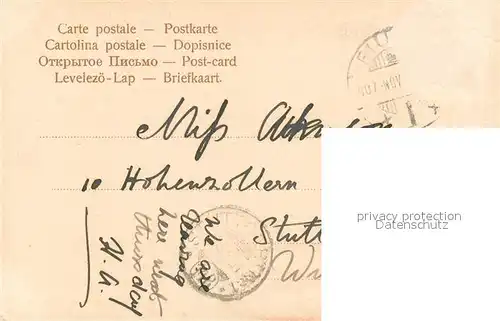 Carte postale — Postkarte
Cartolina postale — Dopisnice
Открытое Письмо — Post-card
Levelező-Lap — Briefkaart.
NOV
Miss
10 Hohenzollern
Stutt
We are
leaving
here next
thursday
H. A.
privacy protection
watermark